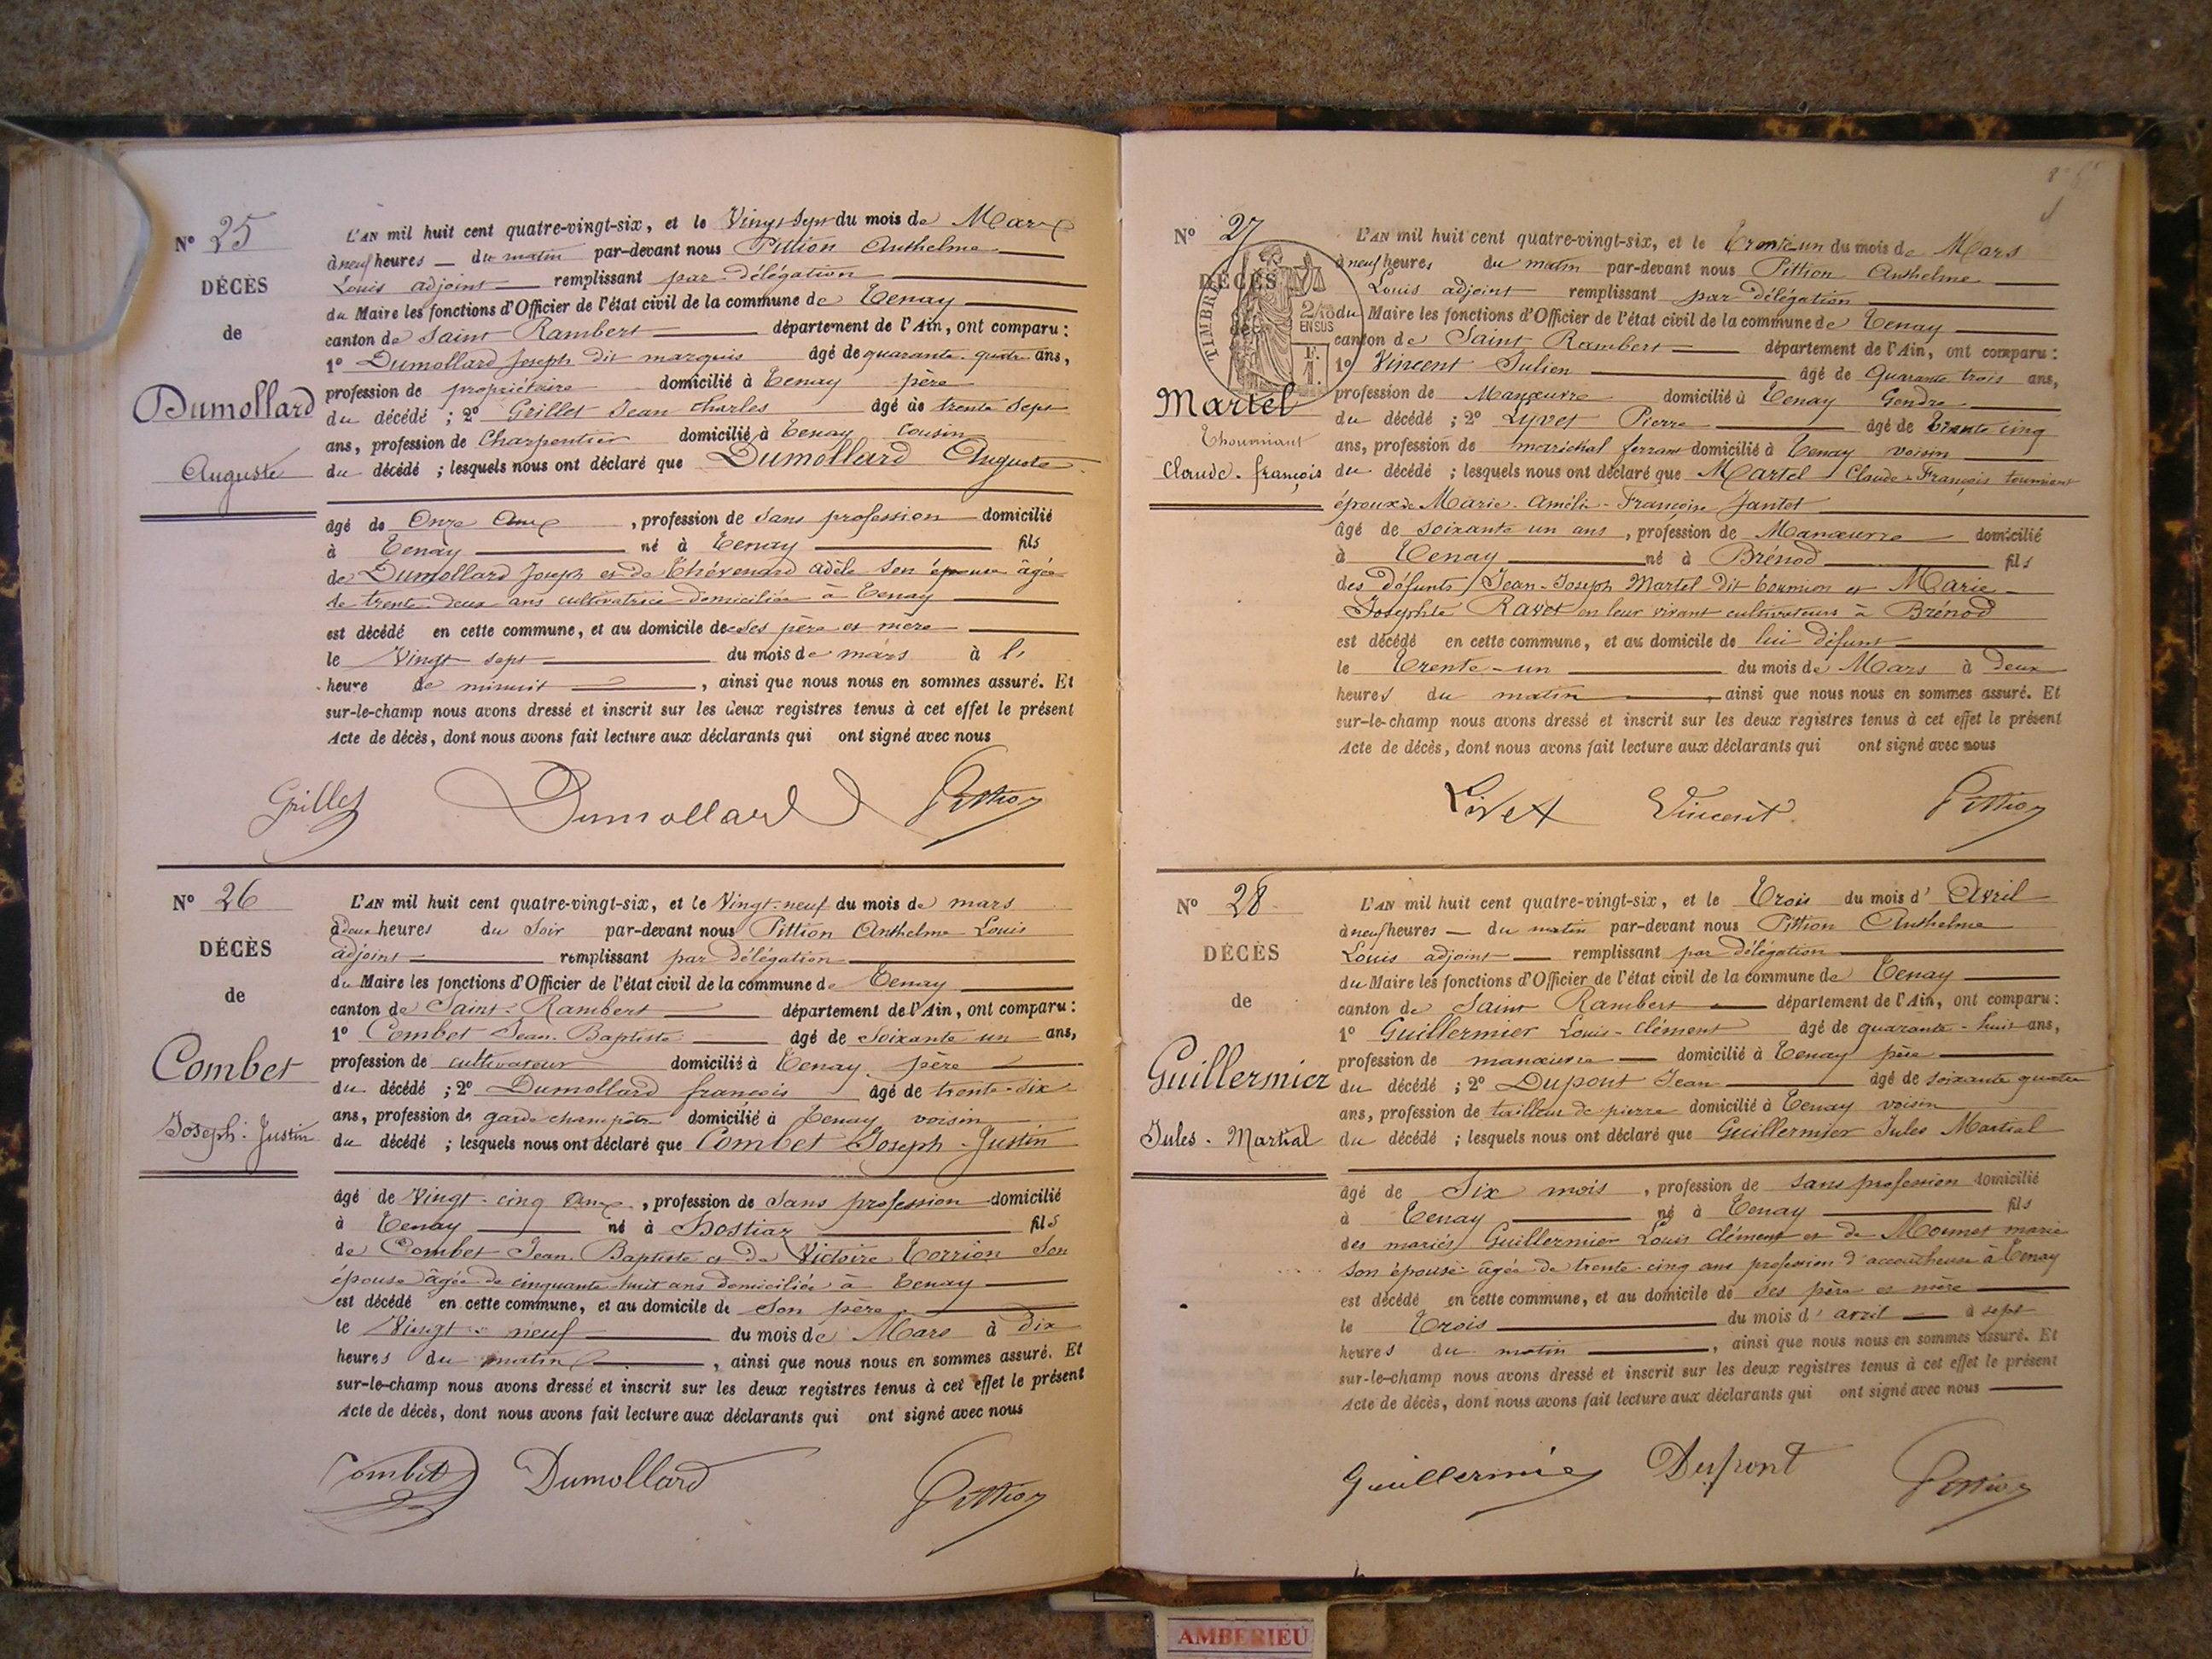 N° 25
DÉCÈS
de
Dumollard
Auguste
L'AN mil huit cent quatre-vingt-six, et le Vingt Sept du mois de Mars
à neuf heures du matin par-devant nous Pittion Anthelme
Louis adjoint remplissant par délégation
du Maire les fonctions d'Officier de l'état civil de la commune de Tenay
canton de Saint Rambert département de l'Ain, ont comparu :
1° Dumollard Joseph dit marquis âgé de quarante-quatre ans,
profession de propriétaire domicilié à Tenay père
du décédé ; 2° Grillet Jean Charles âgé de trente sept
ans, profession de Charpentier domicilié à Tenay Cousin
du décédé ; lesquels nous ont déclaré que Dumollard Auguste
âgé de Onze Ans, profession de Sans profession domicilié
à Tenay né à Tenay fils
de Dumollard Joseph et de Thévenard Adèle Son épouse âgée
de trente-deux ans cultivatrice domiciliée à Tenay
est décédé en cette commune, et au domicile de ses père et mère
le Vingt sept du mois de mars à l'
heure de minuit, ainsi que nous nous en sommes assuré. Et
sur-le-champ nous avons dressé et inscrit sur les deux registres tenus à cet effet le présent
Acte de décès, dont nous avons fait lecture aux déclarants qui ont signé avec nous
Grillet Dumollard Pittion
N° 26
DÉCÈS
de
Combet
Joseph-Justin
L'AN mil huit cent quatre-vingt-six, et le Vingt-neuf du mois de mars
à deux heures du Soir par-devant nous Pittion Anthelme Louis
adjoint remplissant par délégation
du Maire les fonctions d'Officier de l'état civil de la commune de Tenay
canton de Saint-Rambert département de l'Ain, ont comparu :
1° Combet Jean-Baptiste âgé de Soixante un ans,
profession de cultivateur domicilié à Tenay père
du décédé ; 2° Dumollard françois âgé de trente-six
ans, profession de garde champêtre domicilié à Tenay voisin
du décédé ; lesquels nous ont déclaré que Combet Joseph-Justin
âgé de Vingt-cinq Ans, profession de Sans profession domicilié
à Tenay né à Hostiaz fils
de Combet Jean-Baptiste et de Victoire Torrion Son
épouse âgée de cinquante-huit ans domiciliée à Tenay
est décédé en cette commune, et au domicile de Son père
le Vingt-neuf du mois de Mars à dix
heures du matin, ainsi que nous nous en sommes assuré. Et
sur-le-champ nous avons dressé et inscrit sur les deux registres tenus à cet effet le présent
Acte de décès, dont nous avons fait lecture aux déclarants qui ont signé avec nous
Combet Dumollard Pittion
N° 27
DÉCÈS
de
TIMBRE
2/10
EN SUS
Martel
Thourniant
Claude-françois
L'AN mil huit cent quatre-vingt-six, et le trente un du mois de Mars
à neuf heures du matin par-devant nous Pittion Anthelme
Louis adjoint remplissant par délégation
du Maire les fonctions d'Officier de l'état civil de la commune de Tenay
canton de Saint Rambert département de l'Ain, ont comparu :
1° Vincent Julien âgé de Quarante trois ans,
profession de Manœuvre domicilié à Tenay Gendre
du décédé ; 2° Lyvet Pierre âgé de trente cinq
ans, profession de maréchal ferrant domicilié à Tenay voisin
du décédé ; lesquels nous ont déclaré que Martel Claude-François tourniant
époux de Marie-Amélie-Françoise Jantet
âgé de soixante un ans, profession de Manœuvre domicilié
à Tenay né à Brénod fils
des défunts Jean-Joseph Martel dit tournion et Marie-
Josephte Ravet en leur vivant cultivateurs à Brénod
est décédé en cette commune, et au domicile de lui défunt
le Trente-un du mois de Mars à deux
heures du matin, ainsi que nous nous en sommes assuré. Et
sur-le-champ nous avons dressé et inscrit sur les deux registres tenus à cet effet le présent
Acte de décès, dont nous avons fait lecture aux déclarants qui ont signé avec nous
Livet Vincent Pittion
N° 28
DÉCÈS
de
Guillermier
Jules-Martial
L'AN mil huit cent quatre-vingt-six, et le Trois du mois d'Avril
à neuf heures du matin par-devant nous Pittion Anthelme
Louis adjoint remplissant par délégation
du Maire les fonctions d'Officier de l'état civil de la commune de Tenay
canton de Saint Rambert département de l'Ain, ont comparu :
1° Guillermier Louis-Clément âgé de quarante-huit ans,
profession de manœuvre domicilié à Tenay père
du décédé ; 2° Dupont Jean âgé de soixante quatre
ans, profession de tailleur de pierre domicilié à Tenay voisin
du décédé ; lesquels nous ont déclaré que Guillermier Jules Martial
âgé de Six mois, profession de sans profession domicilié
à Tenay né à Tenay fils
des mariés Guillermier Louis Clément et de Mounet marie
son épouse âgée de trente-cinq ans profession d'accoucheuse à Tenay
est décédé en cette commune, et au domicile de ses père et mère
le Trois du mois d'avril à sept
heures du matin, ainsi que nous nous en sommes assuré. Et
sur-le-champ nous avons dressé et inscrit sur les deux registres tenus à cet effet le présent
Acte de décès, dont nous avons fait lecture aux déclarants qui ont signé avec nous
Guillermier Dupont Pittion
AMBERIEU